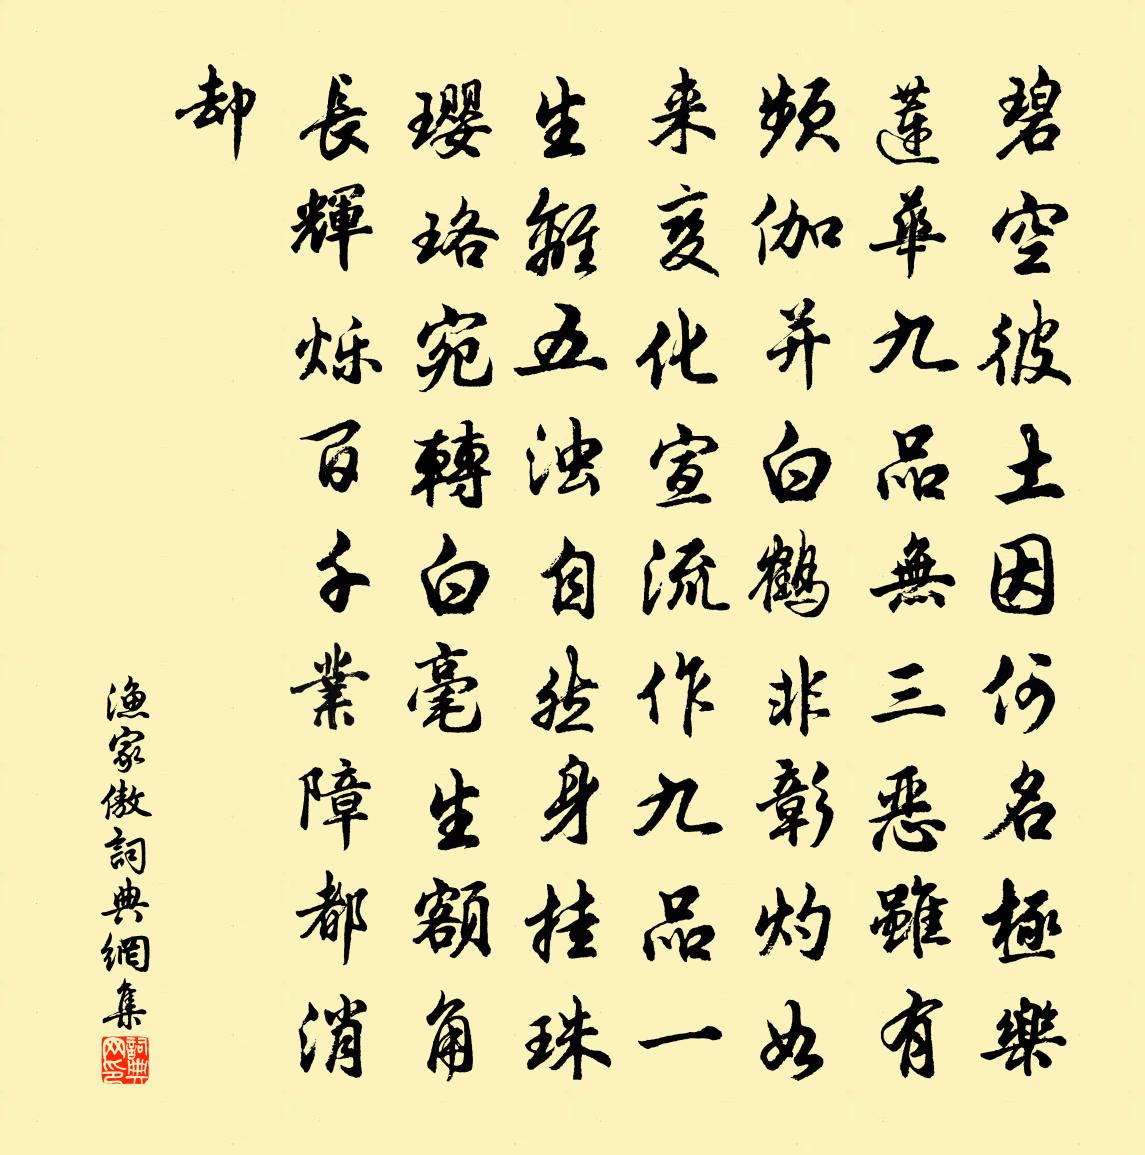 碧空彼土因何名極樂
蓮華九品無三惡雖有
頻伽并白鶴非彰灼如
来变化宣流作九品一
生離五浊自然身挂珠
瓔珞宛轉白毫生額角
長輝烁百千業障都消
却
漁家傲詞典網集
詞典网印